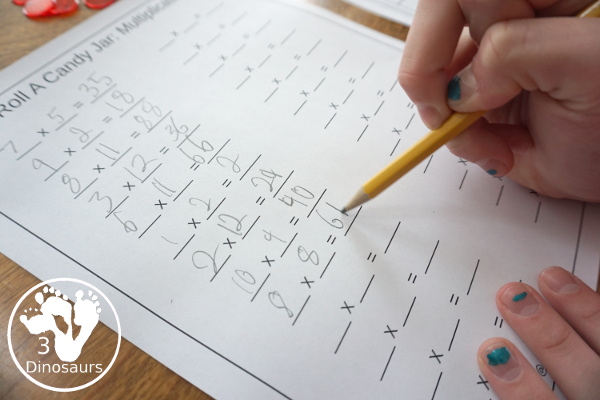 Roll A Candy Jar: Multiplic
7 × 5 = 35
9 × 2 = 18
8 × 11 = 88
3 × 12 = 36
6 × 11 = 66
1 × 2 = 2
2 × 12 = 24
10 × 4 = 40
8 × 8 = 6
3
Dinosaurs
®